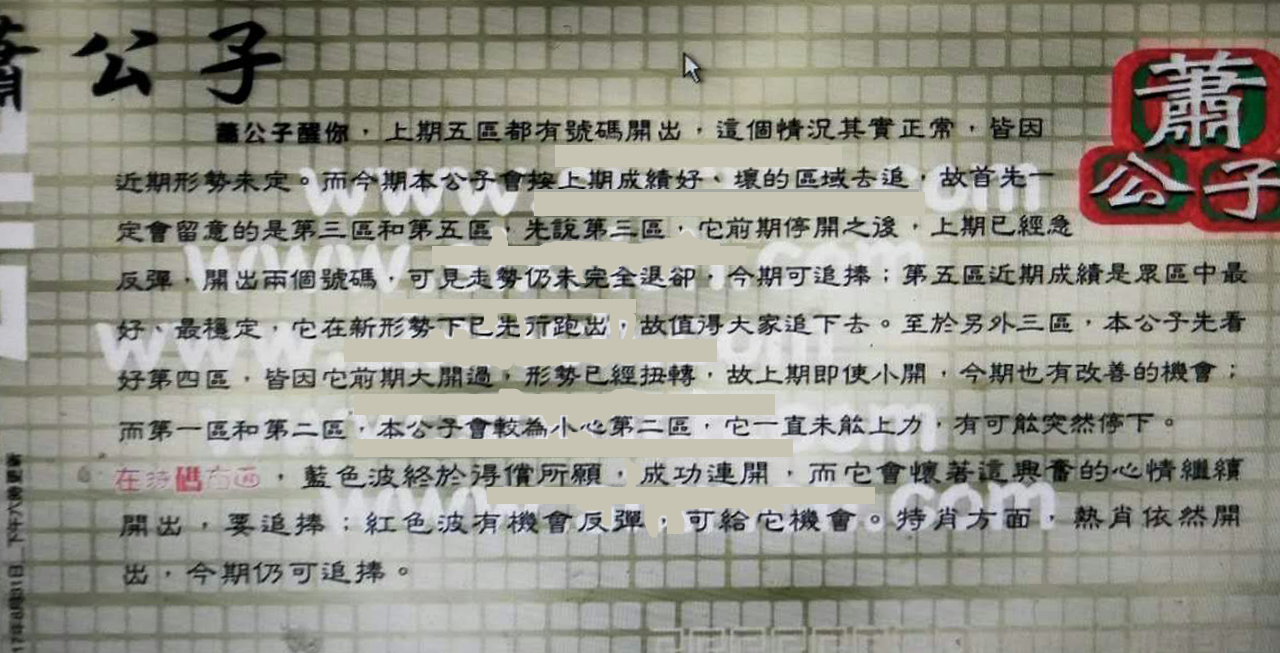 蕭公子
蕭
公子
蕭公子醒你，上期五區都有號碼開出，這個情況其實正常，皆因
近期形勢未定。而今期本公子會按上期成績好、壞的區域去追，故首先一
定會留意的是第三區和第五區，先說第三區，它前期停開之後，上期已經急
反彈，開出兩個號碼，可見走勢仍未完全退卻，今期可追捧；第五區近期成績是眾區中最
好、最穩定，它在新形勢下已先行跑出，故值得大家追下去。至於另外三區，本公子先看
好第四區，皆因它前期大開過，形勢已經扭轉，故上期即使小開，今期也有改善的機會；
而第一區和第二區，本公子會較為小心第二區，它一直未能上力，有可能突然停下。
在特碼方面，藍色波終於得償所願，成功連開，而它會懷著這興奮的心情繼續
開出，要追捧；紅色波有機會反彈，可給它機會。特肖方面，熱肖依然開
出，今期仍可追捧。